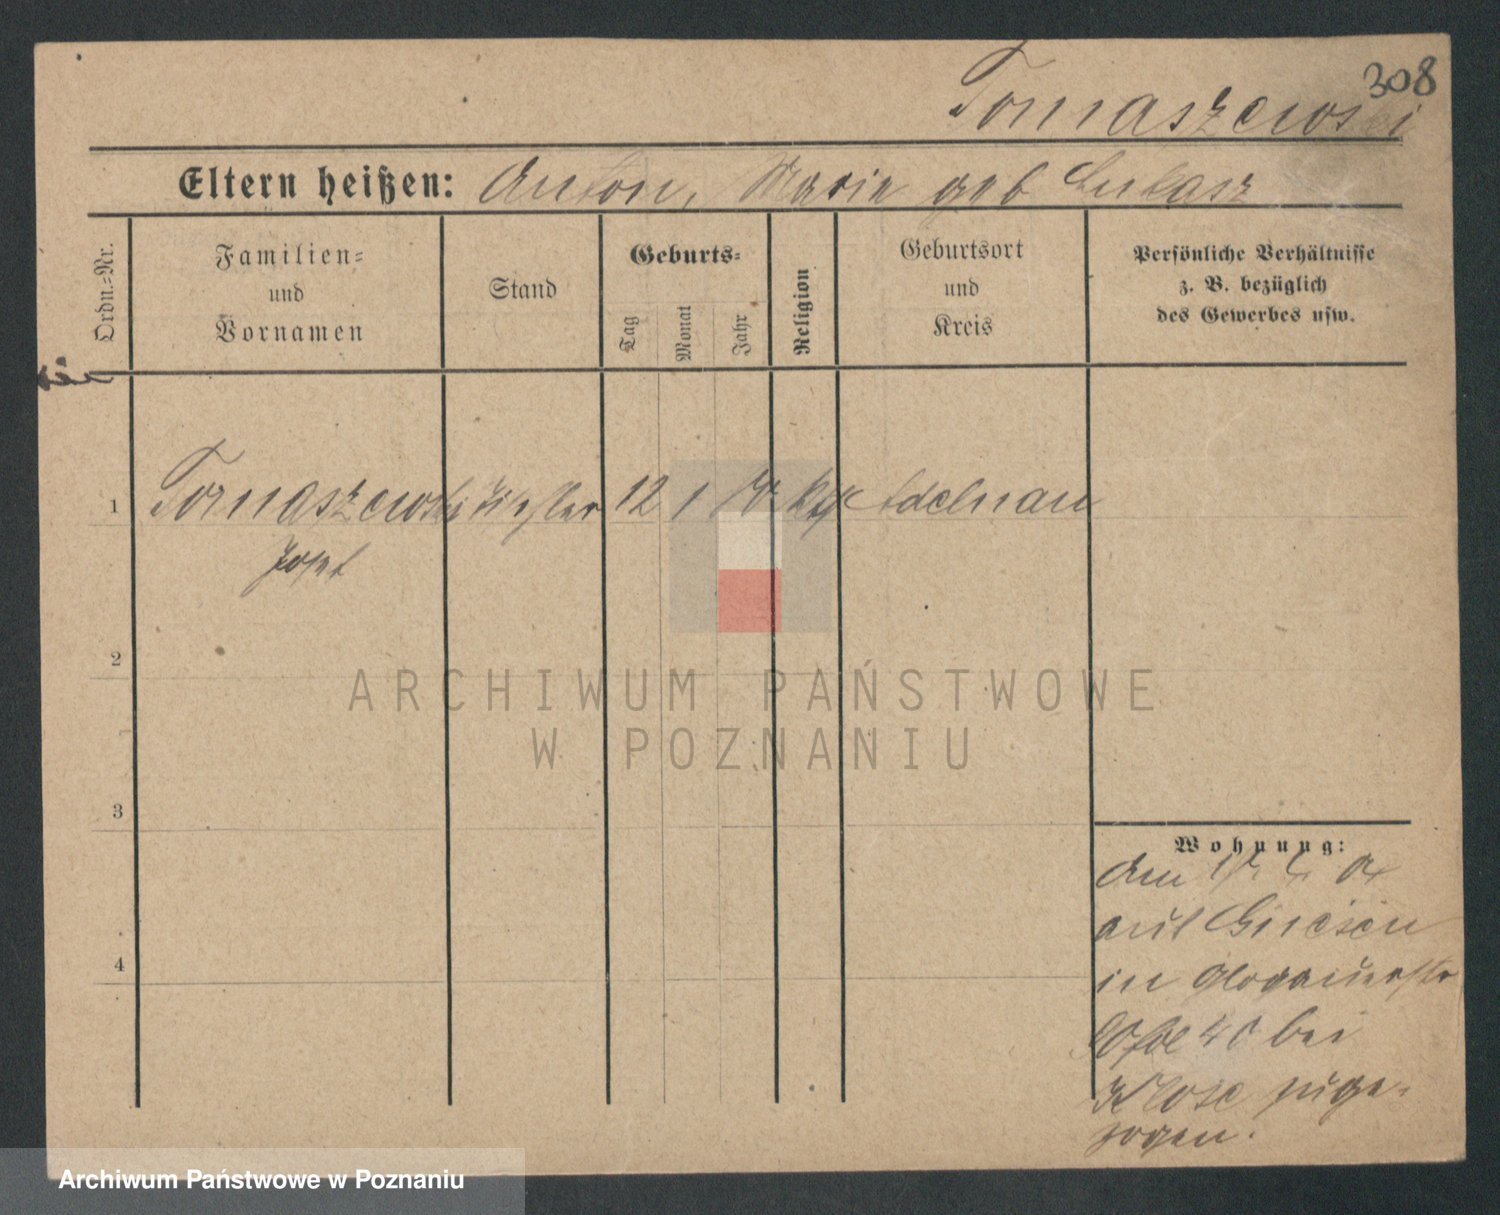 308
Tomaszewski
Eltern heißen: Anton, Marie geb Lukasz
Ordn.-Nr.
Familien-
und
Vornamen
Stand
Geburts-
Tag
Monat
Jahr
Religion
Geburtsort
und
Kreis
Persönliche Verhältnisse
z. B. bezüglich
des Gewerbes usw.
1 Tomaszewski 12 1 kath Adelnau
Josef
2
3
4
ARCHIWUM PAŃSTWOWE
W POZNANIU
Wohnung:
Am
aus Gnesen
in Glogauerstr
40 bei
Klose zuge-
zogen.
Archiwum Państwowe w Poznaniu